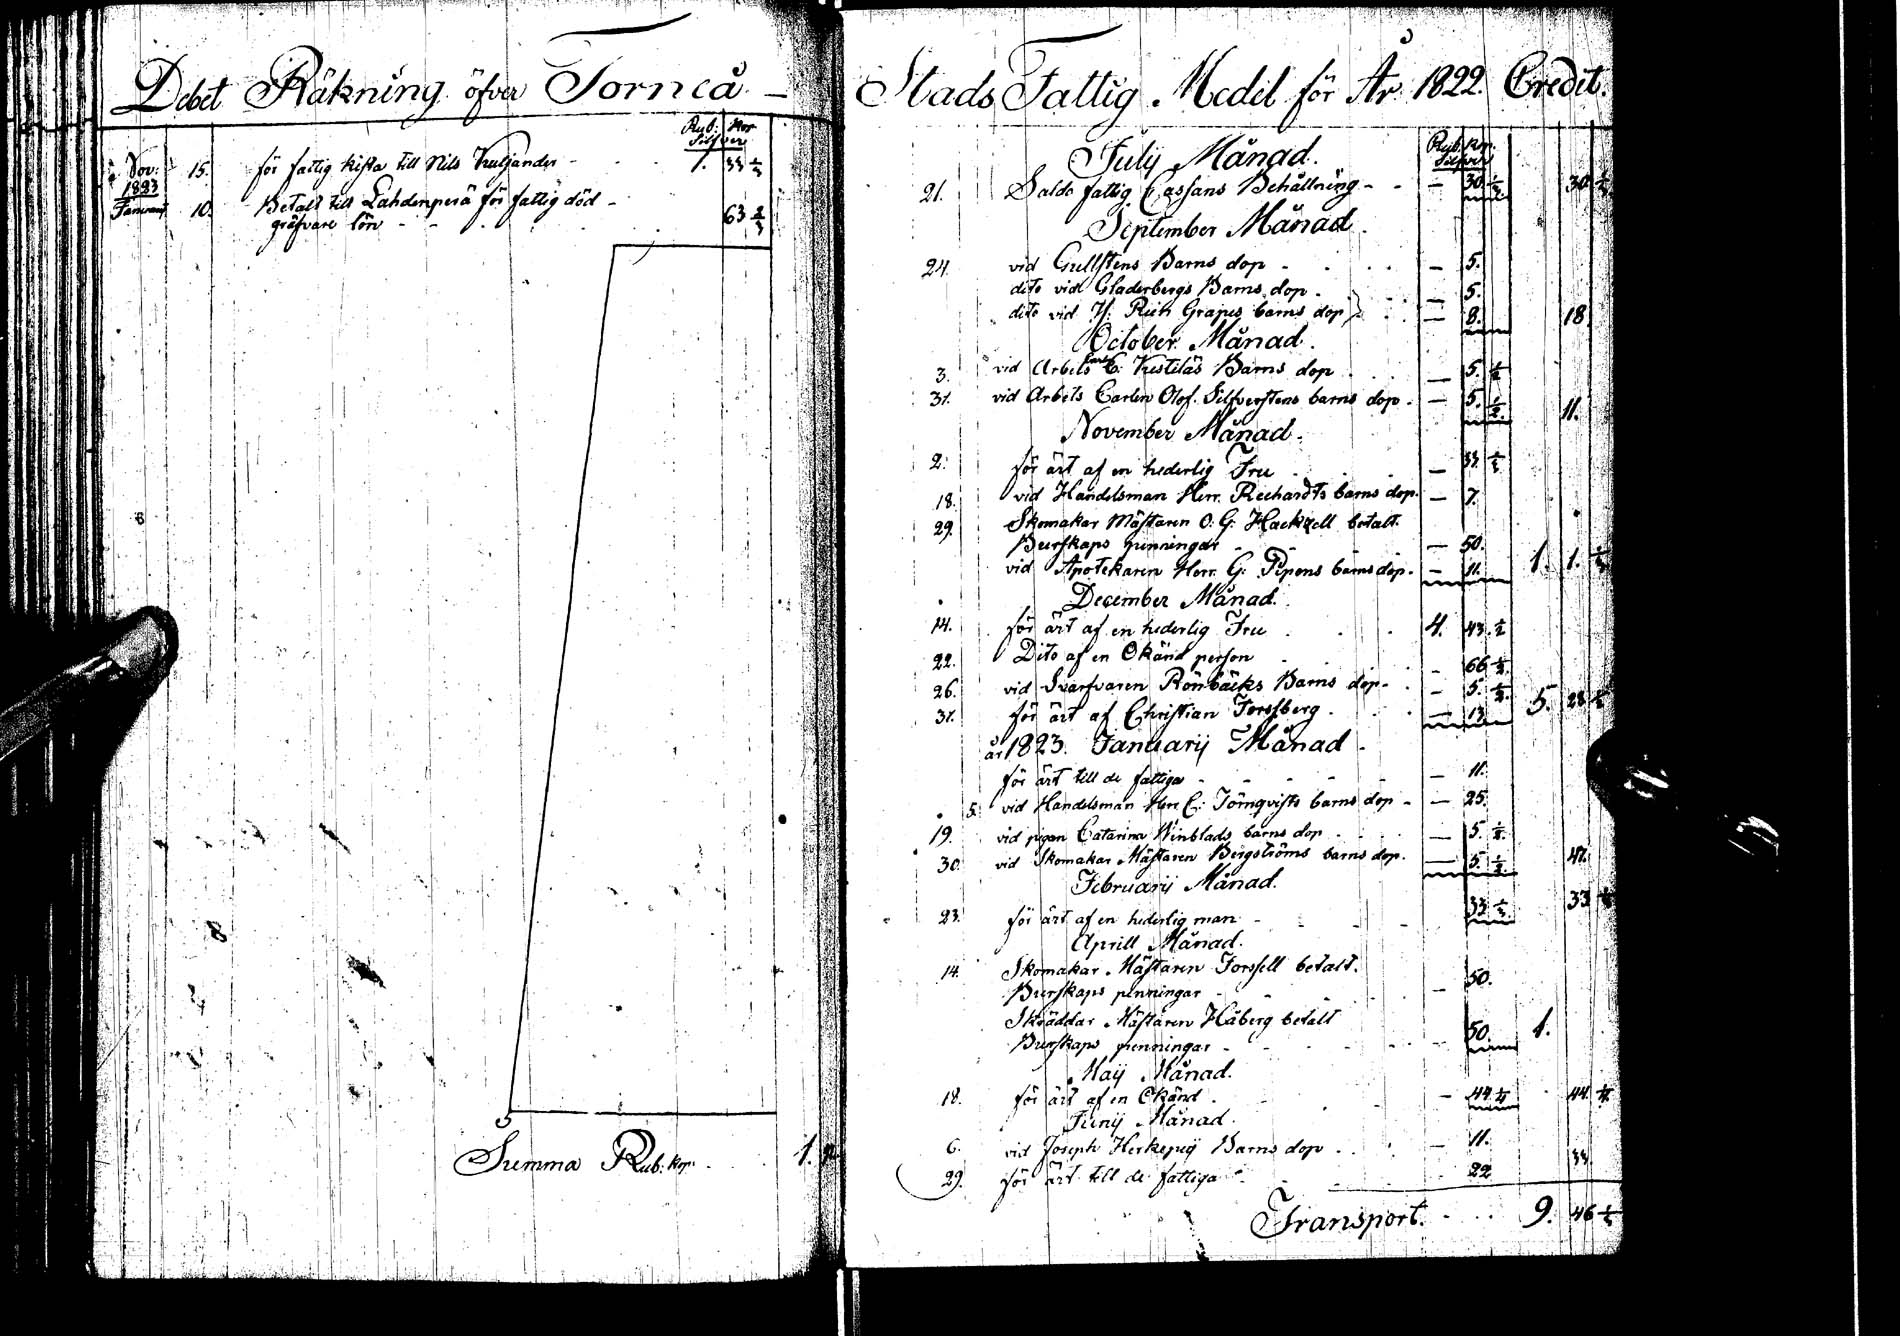 Debet Räkning öfver Torneå
Rub: Kop
Silfver
Nov: 15. för fattig kista till Nils 1. 33 1/3
1823
Januarij 10. Betalt till Lahdenperä för fattig död- 63 2/3
gräfvare lön
Summa Rub: kop. 1.
Stads Fattig Medel för År 1822. Credit.
Rub. Kop.
Silfver
July Månad.
21. Saldo fattig Cassans Behållning - - — 30. 30.
September Månad
24. vid Gullstens Barns dop - — 5.
dito vid Gladerbergs Barns dop. — 5.
dito vid H: Grapes barns dop — 8. 18.
October Månad.
3. vid Arbets Barns dop — 5. 1/2
31. vid Arbets Carlen Olof Silfverstens barns dop. — 5. 1/2. 11.
November Månad.
2. för ärt af en hederlig Fru — 33. 1/3
18. vid Handelsman Herr. Rechardts barns dop. — 7.
29. Skomakar Mästaren O: G: Hackzell betalt.
Burskaps penningar — 50.
vid Apotekaren Herr. G: Pipons barns dop. — 11. 1. 1. 1/3
December Månad.
14. för ärt af en hederlig Fru 4. 43. 1/2
22. Dito af en Okänd person 66
26. vid Svarfvaren Rönbäcks Barns dop. — 5.
31. för ärt af Christian Forssberg. — 13. 5. 28
år 1823. Januarij Månad
för ärt till de fattiga — 11.
5. vid Handelsman Herr C: Törnqvists barns dop — 25.
19. vid pigan Catarina Winblads barns dop — 5. 1/2.
30. vid Skomakar Mästaren Bergströms barns dop. — 5. 1/2. 47.
Februarij Månad.
23. för ärt af en hederlig man 33 1/3 33.
Aprill Månad.
14. Skomakar Mästaren Forssell betalt.
Burskaps penningar — 50.
Skräddar Mästaren Håberg betalt
Burskaps penningar 50. 1.
Maij Månad.
18. för ärt af en Okänd — 44. 1/4 44. 1/4.
Junij Månad.
6. vid Joseph Barns dop — 11.
29. för ärt till de fattiga 22 33.
Transport. 9. 46